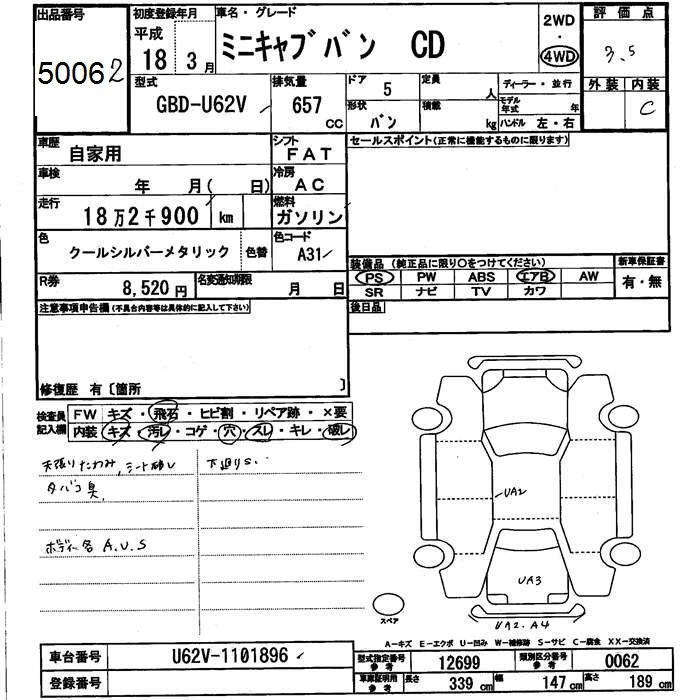 出品番号 50062
初度登録年月 平成 18 3月
車名・グレード ミニキャブバン CD
2WD・4WD
評価点 3.5
外装 内装 C
型式 GBD-U62V
排気量 657 CC
ドア 5
定員 人
形状 バン
積載 kg
ディーラー・並行
モデル年式 年
ハンドル 左・右
車歴 自家用
シフト FAT
セールスポイント(正常に機能するものに限ります)
車検 年 月( 日)
冷房 AC
走行 18万2千900 km
燃料 ガソリン
色 クールシルバーメタリック 色替
色コード A31
装備品 (純正品に限り○をつけてください)
新車保証書 有・無
PS PW ABS エアB AW
SR ナビ TV カワ
R券 8,520円
名変通知期限 月 日
後日品
注意事項申告欄(不具合内容等は具体的に記入して下さい)
修復歴 有〔箇所 〕
検査員記入欄
FW キズ・飛石・ヒビ割・リペア跡・×要
内装 キズ・汚レ・コゲ・穴・スレ・キレ・破レ
天張りたわみ,シート破レ 下廻りS.
タバコ臭
ボディー各 A.U.S
UA2
UA3
UA2.A4
スペア
A-キズ E-エクボ U-凹み W-補修跡 S-サビ C-腐食 XX-交換済
車台番号 U62V-1101896
登録番号
型式指定番号 参考 12699
類別区分番号 参考 0062
車庫証明用 参考 長さ 339 cm 幅 147 cm 高さ 189 cm